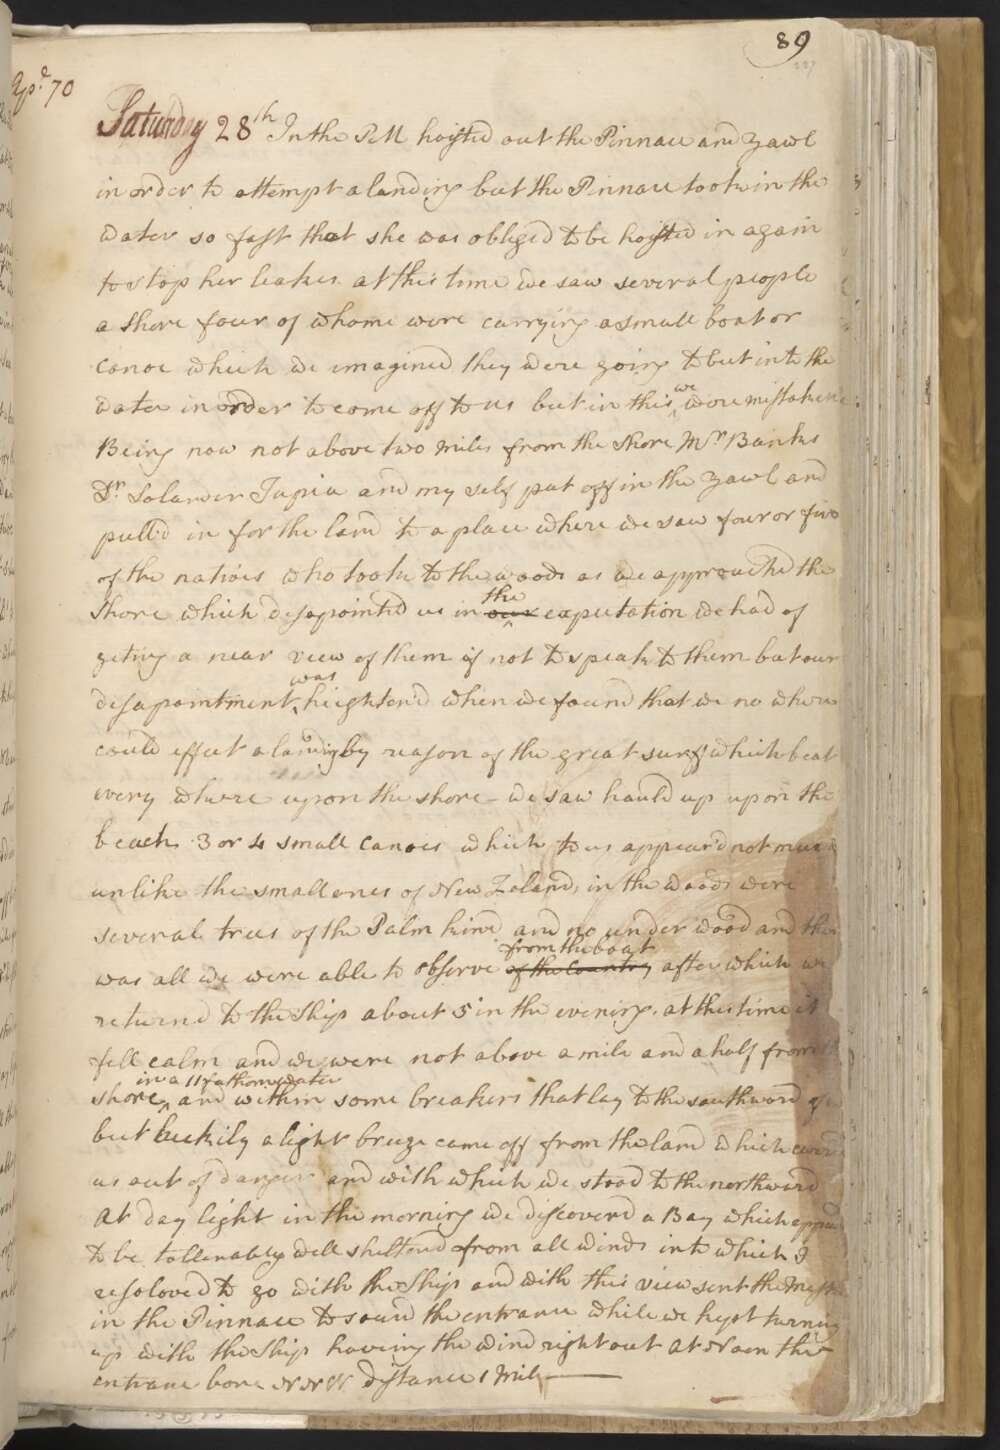 89
Ap.l 70
Saturday 28th In the PM hoisted out the Pinnace and yawl
in order to attempt a landing but the Pinnace took in the
water so fast that she was obliged to be hoisted in again
to stop her leakes. at this time we saw several people
a shore four of whome were carrying a small boat or
Canoe which we imagined they were going to but in to the
water in order to come off to us but in this we were mistaken
Being now not above two Miles from the shore Mr Banks
Dr Solander Tupia and my self put off in the yawl and
pull'd in for the land to a place where we saw four or five
of the natives who took to the woods as we approachd the
Shore which disapointed us in the our expectation we had of
geting a near view of them if not to speak to them but our
disapointment was heighten'd when we found that we no where
could effect a landing by reason of the great surff which beat
every where upon the shore - we saw hauld up upon the
beach 3 or 4 small Canoes which to us appear'd not much
unlike the small ones of New Zeland, in the woods were
several trees of the Palm kind and no under wood and this
was all we were able to observe from the boat of the Country after which we
returnd to the Ship about 5 in the evening. at this time it
fell calm and we were not above a mile and a half from the
shore in a 11 fathom water and within some breakers that lay to the southward of us
but luckily a light breeze came off from the land which carried
us out of danger and with which we stood to the northward
At day light in the morning we discoverd a Bay which appeard
to be tollerably well shelterd from all winds in to which I
resoloved to go with the Ship and with this view sent the Master
in the Pinnace to sound the entrance while we kept turning
up with the Ship haveing the wind right out At Noon the
entrance bore NNW distance 1 Mile